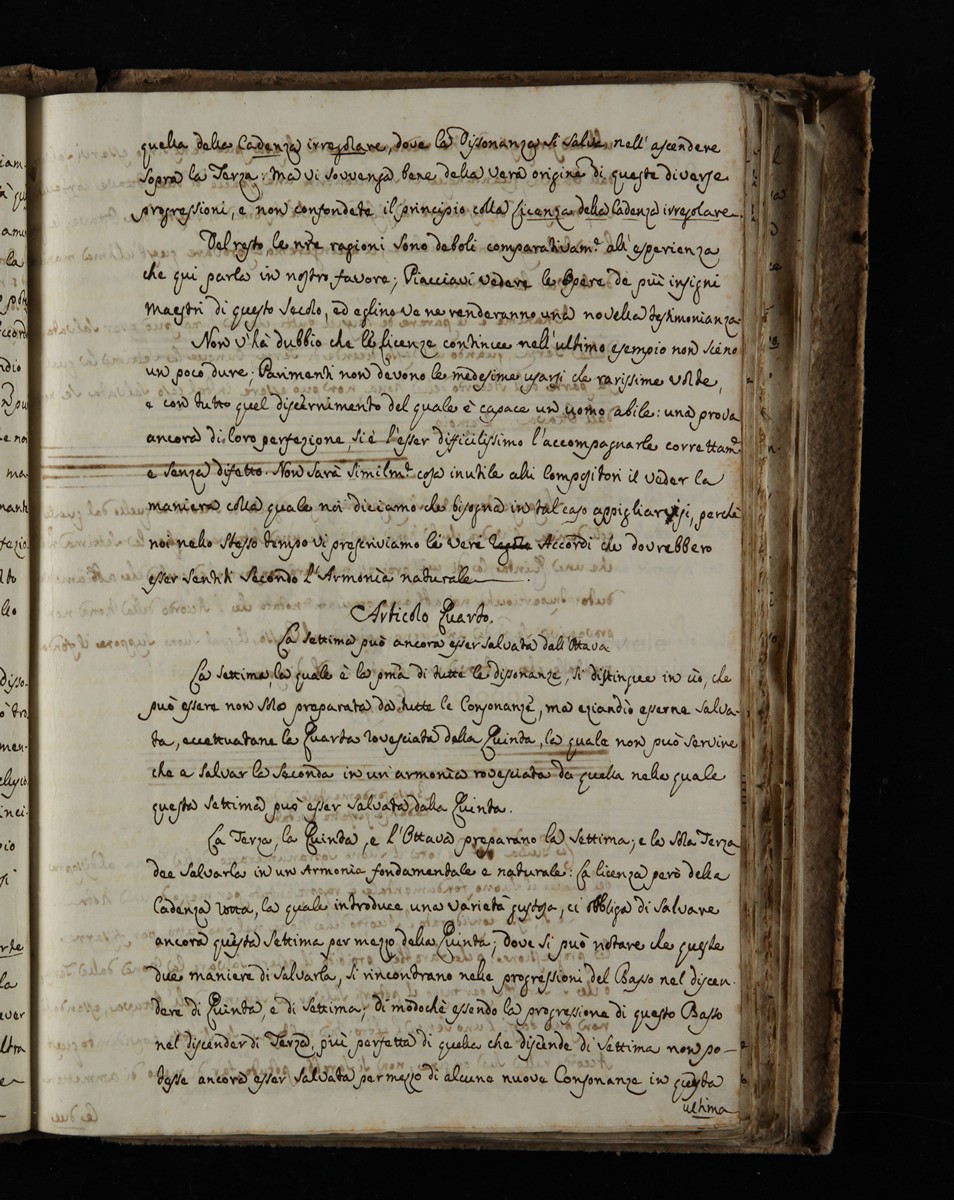 quella della Cadenza irregolare, dove la Dissonanza si Salva nell'ascendere
sopra la Terza: Ma vi sovvenga bene della vera origine di queste diverse
progressioni, e non confondete il principio colla licenza della Cadenza irregolare.
Del resto le nre ragioni sono deboli comparativam.e all'esperienza
che qui parla in nostro favore; Piacciavi vedere le Opere de più insigni
Maestri di questo Secolo, ed eglino ve ne renderanno una novella testimonianza.
Non v'ha dubbio che le licenze continue nell'ultimo esempio non sieno
un poco dure; Parimenti non devono le medesime usarsi che rarissime volte,
e con tutto quel discernimento del quale è capace un uomo abile: una prova
ancora di loro perfezione, si è l'esser difficilissimo l'accompagnarle correttam.e
e senza difetto. Non sarà similm.e cosa inutile alli Compositori il veder la
maniera colla quale noi diciamo che bisogna in tal caso appigliarsi, perchè
noi nello stesso tempo vi prescriviamo li veri Accordi che dovrebbero
esser sentiti secondo l'Armonia naturale.
Articolo Quarto.
La Settima può ancora esser salvata dall'Ottava
La Settima, la quale è la pma di tutte le dissonanze, si distingue in ciò, che
può essere non solo preparata da tutte le Consonanze, ma eziandio esserne salva-
ta, eccettuatane la Quarta rovesciata dalla Quinta, la quale non può servire
che a salvar la Seconda in un armonia rovesciata da quella nella quale
questa Settima può esser salvata dalla Quinta.
La Terza, la Quinta, e l'Ottava preparano la Settima; e la sola Terza
dee salvarla in un Armonia fondamentale e naturale: La licenza però della
Cadenza rotta, la quale introduce una varietà gustosa, ci obbliga di salvare
ancora questa Settima per mezzo della Quinta; dove si può notare che queste
due maniere di salvarla, si rincontrano nelle progressioni del Basso nel discen-
dere di Quinta, e di Settima; di modochè essendo la progressione di questo Basso
nel discender di Terza, più perfetta di quella che discende di Settima non po-
tesse ancora esser salvata per mezzo di alcune nuove Consonanze in questa
ultima